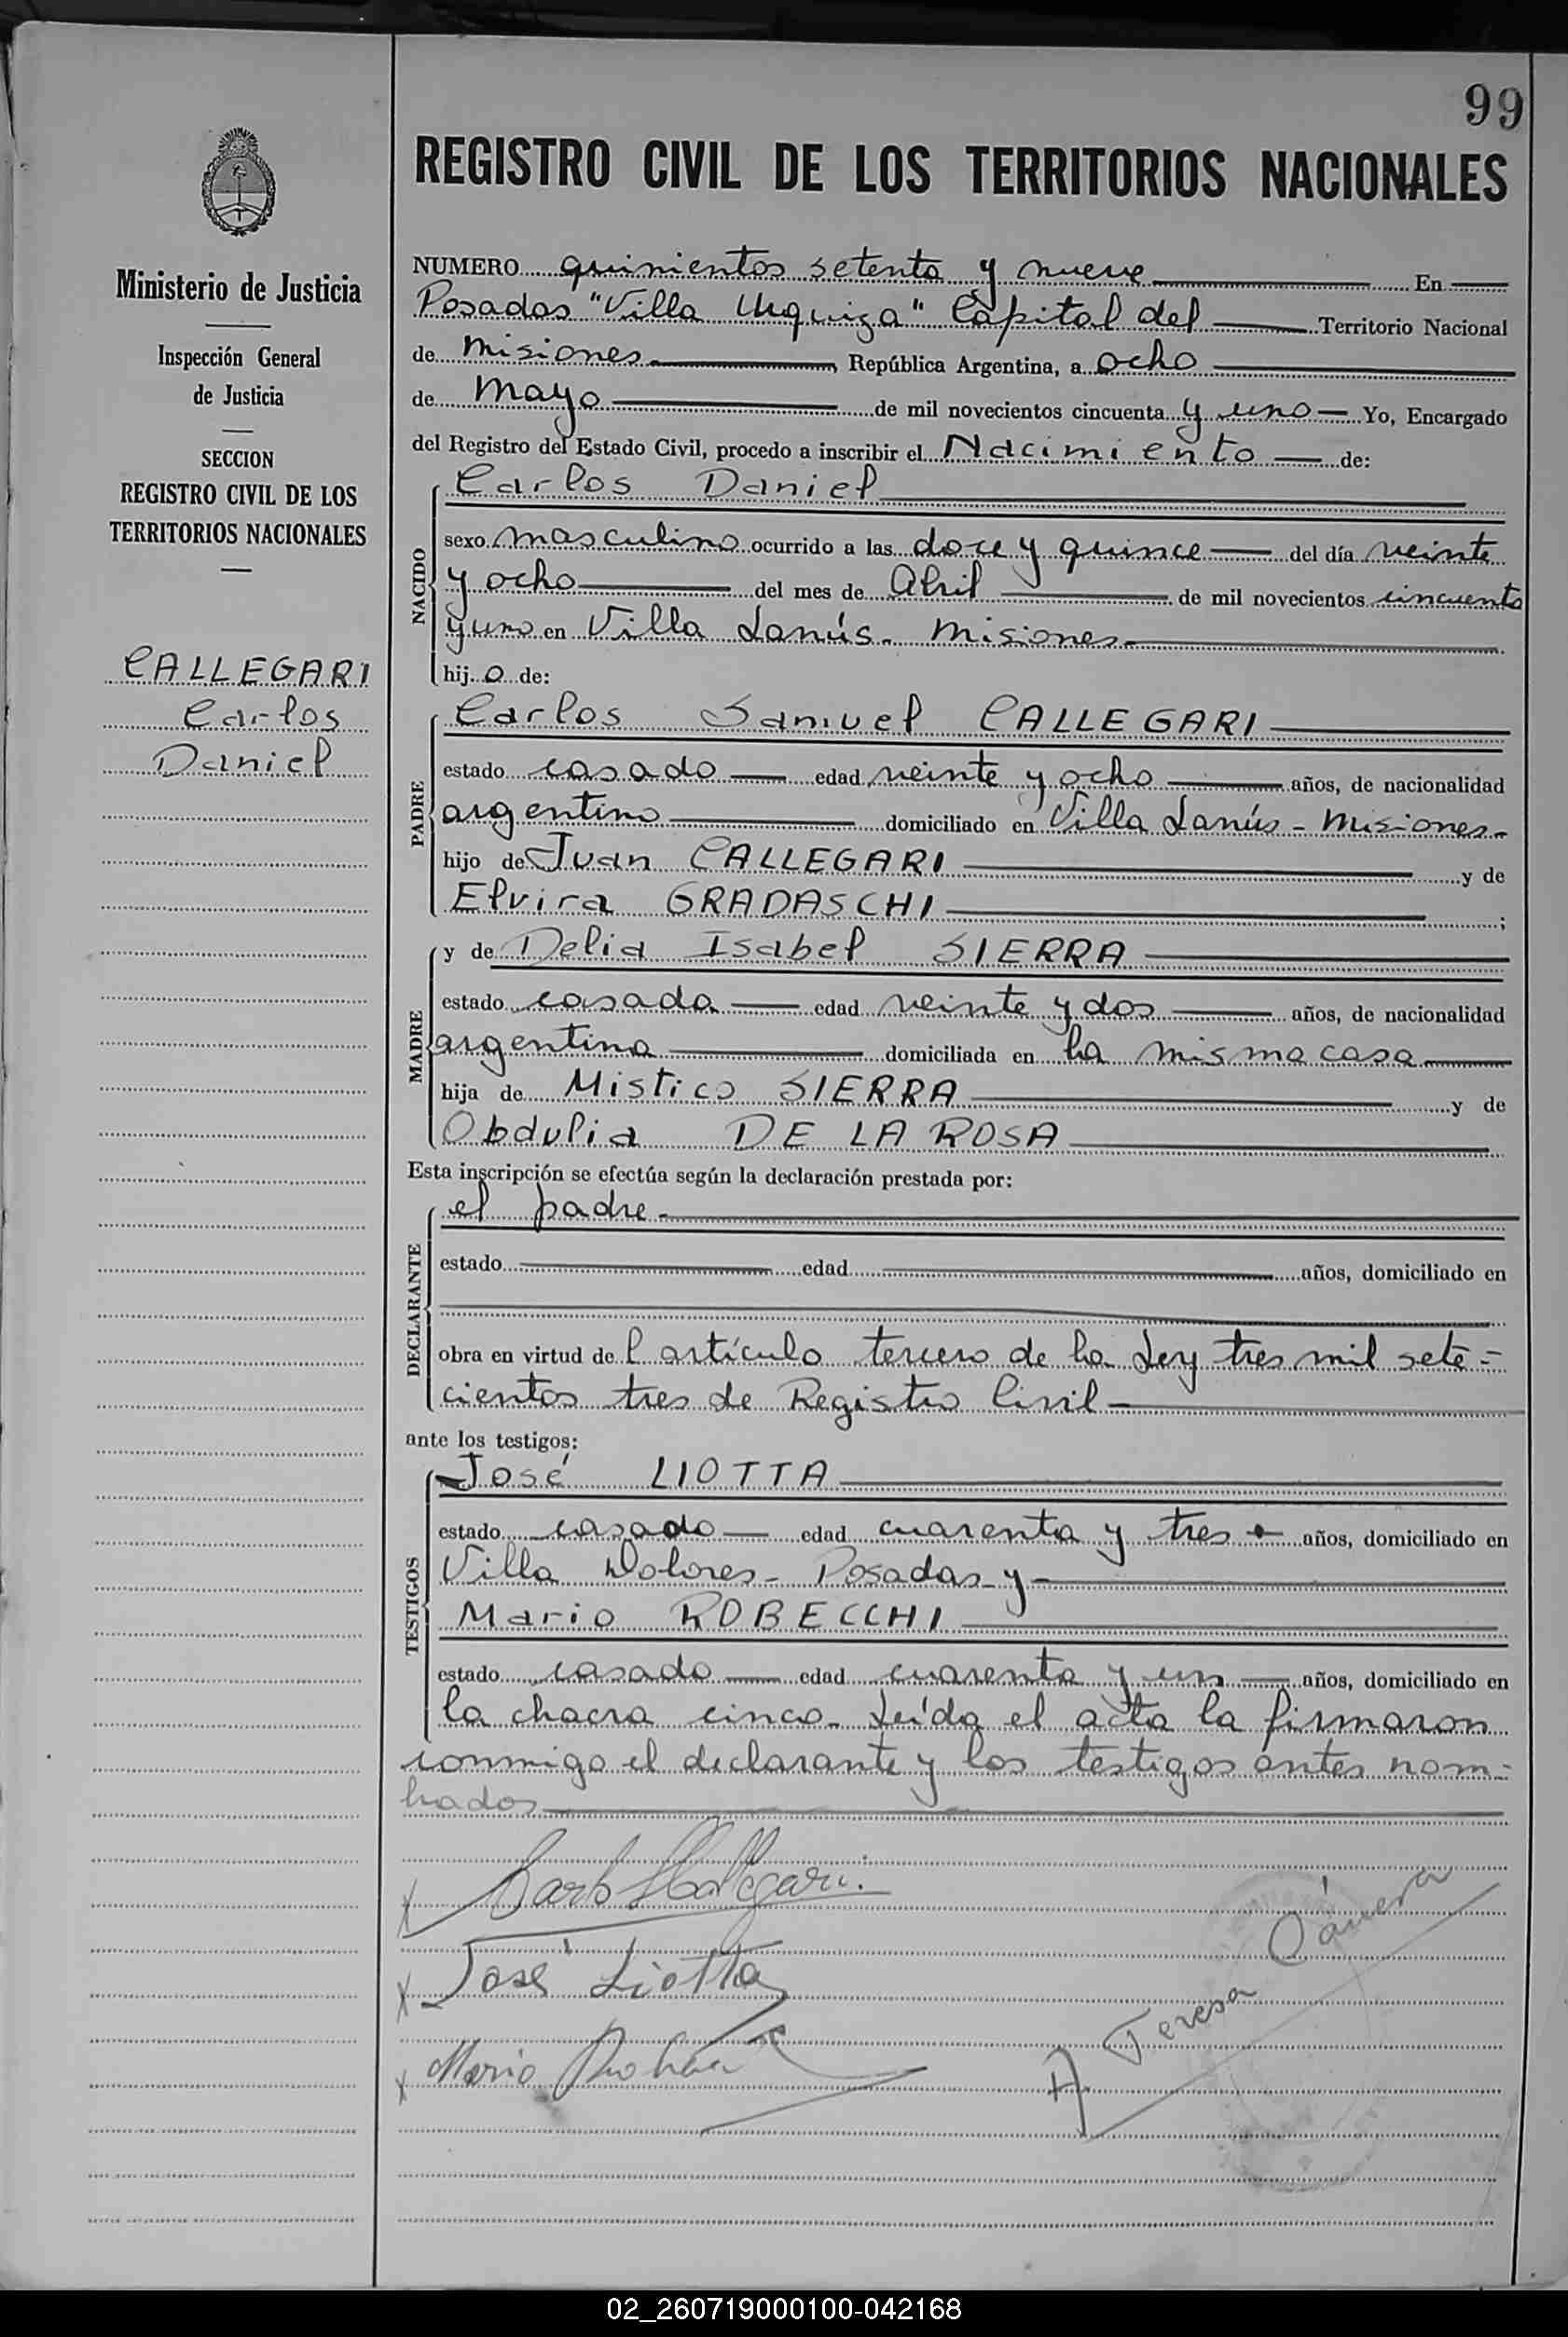 99
REGISTRO CIVIL DE LOS TERRITORIOS NACIONALES
Ministerio de Justicia
Inspección General
de Justicia
SECCION
REGISTRO CIVIL DE LOS
TERRITORIOS NACIONALES
CALLEGARI
Carlos
Daniel
NUMERO quinientos setenta y nueve En
Posadas "Villa Urquiza" Capital del Territorio Nacional
de Misiones, República Argentina, a ocho
de Mayo de mil novecientos cincuenta y uno Yo, Encargado
del Registro del Estado Civil, procedo a inscribir el Nacimiento de:
NACIDO
Carlos Daniel
sexo masculino ocurrido a las doce y quince del día veinte
y ocho del mes de Abril de mil novecientos cincuenta
y uno en Villa Lanús - Misiones
hijo de:
PADRE
Carlos Samuel CALLEGARI
estado casado edad veinte y ocho años, de nacionalidad
argentino domiciliado en Villa Lanús - Misiones -
hijo de Juan CALLEGARI y de
Elvira GRADASCHI ;
MADRE
y de Delia Isabel SIERRA
estado casada edad veinte y dos años, de nacionalidad
argentina domiciliada en la misma casa
hija de Mistico SIERRA y de
Obdulia DE LA ROSA
Esta inscripción se efectúa según la declaración prestada por:
DECLARANTE
el padre
estado edad años, domiciliado en
obra en virtud del artículo tercero de la Ley tres mil sete=
cientos tres de Registro Civil
ante los testigos:
TESTIGOS
José LIOTTA
estado casado edad cuarenta y tres años, domiciliado en
Villa Dolores - Posadas y
Mario ROBECCHI
estado casado edad cuarenta y un años, domiciliado en
la chacra cinco - Leída el acta la firmaron
conmigo el declarante y los testigos antes nom=
brados
José Liotta
Mario
A Teresa
02_260719000100-042168